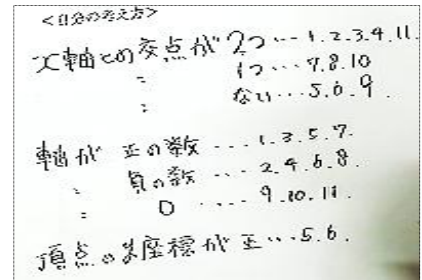 <自分の考え方>
x軸との交点が2つ…1.2.3.4.11.
〃 1つ…7.8.10
〃 ない…5.6.9
軸が 正の数 …1.3.5.7.
〃 負の数 …2.4.6.8.
〃 0 …9.10.11.
頂点のy座標が正…5.6.